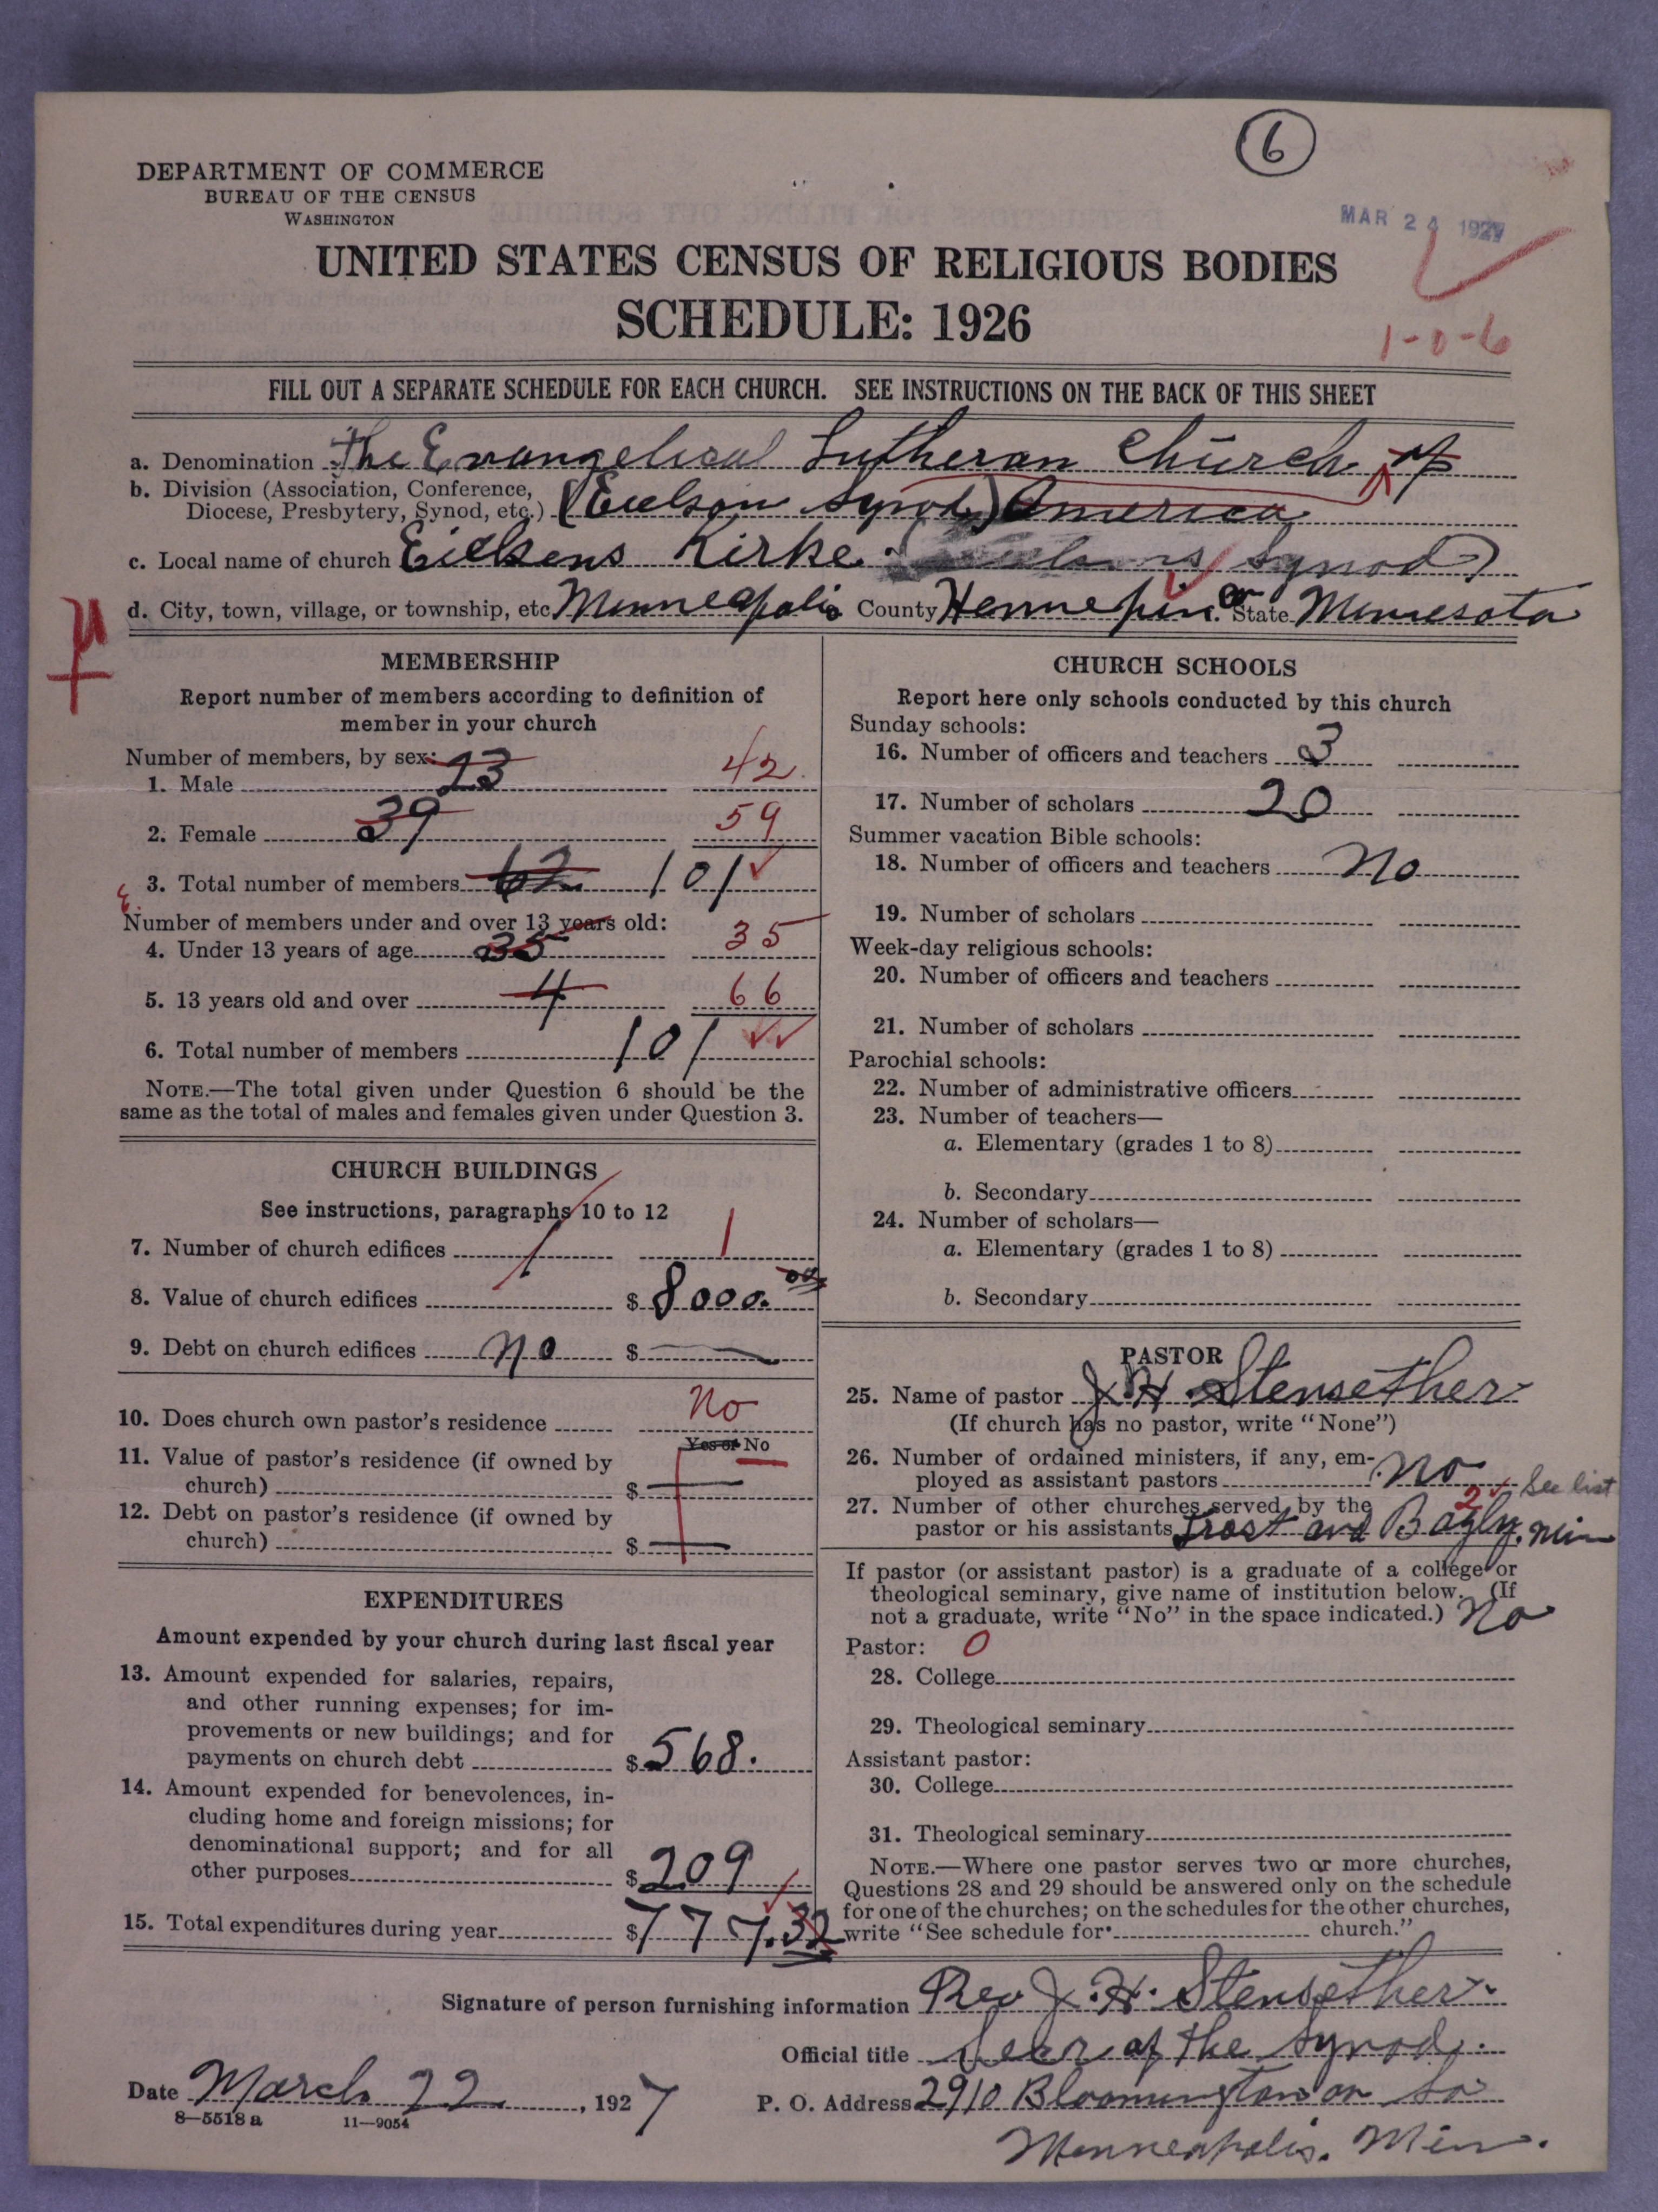 6
DEPARTMENT OF COMMERCE
BUREAU OF THE CENSUS
WASHINGTON
MAR 24 1927
UNITED STATES CENSUS OF RELIGIOUS BODIES
SCHEDULE: 1926
1-0-6
FILL OUT A SEPARATE SCHEDULE FOR EACH CHURCH. SEE INSTRUCTIONS ON THE BACK OF THIS SHEET
a. Denomination The Evangelical Lutheran Church of
b. Division (Association, Conference,
Diocese, Presbytery, Synod, etc.) (Eielsen Synod) America
c. Local name of church Eielsens Kirke. Synod)
d. City, town, village, or township, etc Minneapolis County Hennepin. State Minnesota
MEMBERSHIP
Report number of members according to definition of
member in your church
Number of members, by sex:
1. Male 23 42
2. Female 39 59
3. Total number of members 62 101
Number of members under and over 13 years old:
4. Under 13 years of age 35 35
5. 13 years old and over 4 66
6. Total number of members 101
NOTE.—The total given under Question 6 should be the
same as the total of males and females given under Question 3.
CHURCH BUILDINGS
See instructions, paragraphs 10 to 12
7. Number of church edifices 1 1
8. Value of church edifices $ 8000.00
9. Debt on church edifices no $
10. Does church own pastor's residence No
Yes or No
11. Value of pastor's residence (if owned by
church) $
12. Debt on pastor's residence (if owned by
church) $
EXPENDITURES
Amount expended by your church during last fiscal year
13. Amount expended for salaries, repairs,
and other running expenses; for im-
provements or new buildings; and for
payments on church debt $ 568.
14. Amount expended for benevolences, in-
cluding home and foreign missions; for
denominational support; and for all
other purposes $ 209
15. Total expenditures during year $ 777.32
CHURCH SCHOOLS
Report here only schools conducted by this church
Sunday schools:
16. Number of officers and teachers 3
17. Number of scholars 20
Summer vacation Bible schools:
18. Number of officers and teachers No
19. Number of scholars
Week-day religious schools:
20. Number of officers and teachers
21. Number of scholars
Parochial schools:
22. Number of administrative officers
23. Number of teachers—
a. Elementary (grades 1 to 8)
b. Secondary
24. Number of scholars—
a. Elementary (grades 1 to 8)
b. Secondary
PASTOR
25. Name of pastor J. H. Stensether
(If church has no pastor, write "None")
26. Number of ordained ministers, if any, em-
ployed as assistant pastors no
2 See list
27. Number of other churches served by the
pastor or his assistants Frost and Bagly. Min
If pastor (or assistant pastor) is a graduate of a college or
theological seminary, give name of institution below. (If
not a graduate, write "No" in the space indicated.) No
Pastor: 0
28. College
29. Theological seminary
Assistant pastor:
30. College
31. Theological seminary
NOTE.—Where one pastor serves two or more churches,
Questions 28 and 29 should be answered only on the schedule
for one of the churches; on the schedules for the other churches,
write "See schedule for church."
Signature of person furnishing information Rev J. H. Stensether
Official title Secr of the Synod.
Date March 22, 1927
P. O. Address 2910 Bloomington av So
8—5518a 11—9054
Minneapolis. Min.